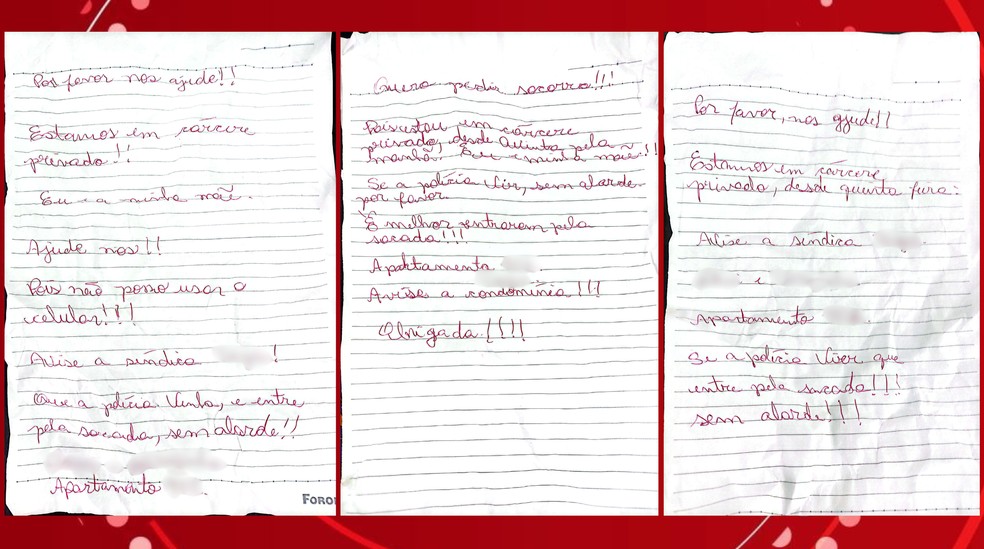 Por favor nos ajude!!
Estamos em cárcere
privado!!
Eu e a minha mãe.
Ajude nos!!
Pois não posso usar o
celular!!!
Avise a síndica !
Que a polícia Venha, e entre
pela sacada, sem alarde!!
Apartamento
Foron
Quero pedir socorro!!!
Pois estou em cárcere
privado, desde Quinta pela
manhã. Eu e minha mãe!!
Se a polícia Vir, sem alarde
por favor.
É melhor entrarem pela
sacada!!!
Apartamento
Avise a condomínia!!!
Obrigada!!!!
Por favor, nos ajude!!
Estamos em cárcere
privado, desde quinta fura.
Avise a síndica
e
Apartamento
Se a polícia Vier que
entre pela sacada!!!
sem alarde!!!